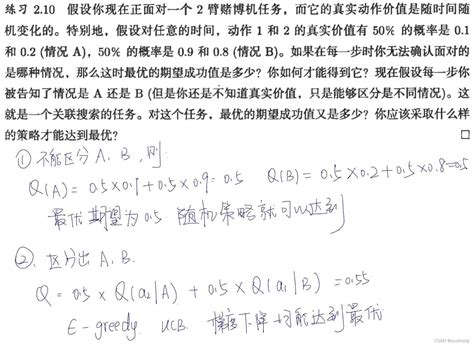 练习 2.10 假设你现在正面对一个 2 臂赌博机任务，而它的真实动作价值是随时间随
机变化的。特别地，假设对任意的时间，动作 1 和 2 的真实价值有 50% 的概率是 0.1
和 0.2 (情况 A)，50% 的概率是 0.9 和 0.8 (情况 B)。如果在每一步时你无法确认面对的
是哪种情况，那么这时最优的期望成功值是多少？你如何才能得到它？现在假设每一步你
被告知了情况是 A 还是 B (但是你还是不知道真实价值，只是能够区分是不同情况)。这
就是一个关联搜索的任务。对这个任务，最优的期望成功值又是多少？你应采取什么样
的策略才能达到最优？ □
① 不能区分 A、B，则
Q(A) = 0.5×0.1+0.5×0.9 = 0.5 Q(B) = 0.5×0.2+0.5×0.8=0.5
最优期望为0.5 随机策略就可以达到
②. 区分出 A、B.
Q = 0.5 × Q(a₂|A) + 0.5 × Q(a₁|B) = 0.55
ε-greedy UCB. 梯度下降 均可能达到最优
CSDN @